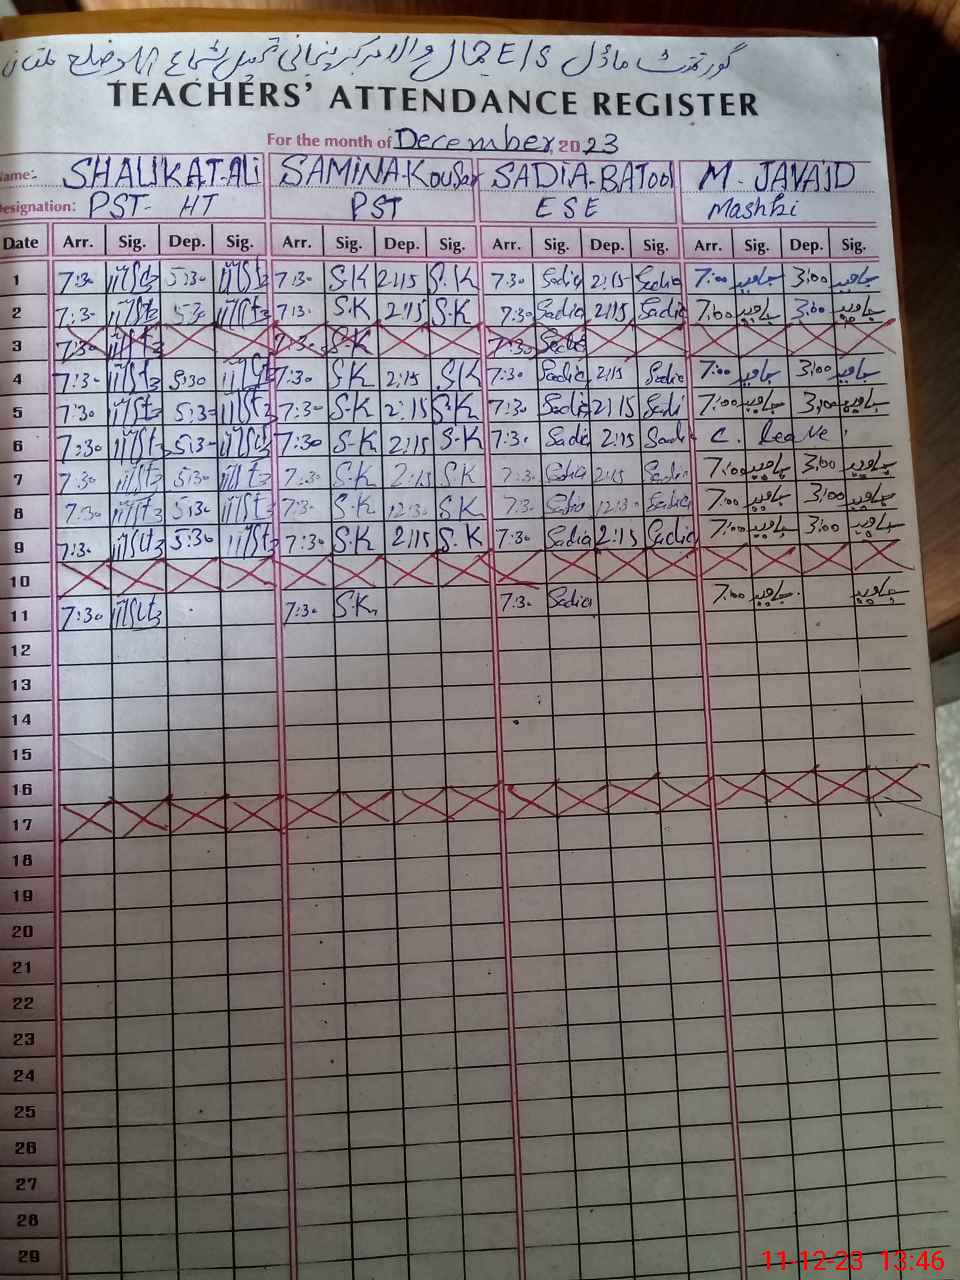 گورنمنٹ ماڈل E/S جمال والا مرکز تحصیل شجاع آباد ضلع ملتان
TEACHERS' ATTENDANCE REGISTER
For the month of December 2023
Name: SHAUKAT-ALI SAMINA-KOUSAR SADIA-BATOOL M-JAVAID
Designation: PST- HT PST ESE Mashki
Date Arr. Sig. Dep. Sig. Arr. Sig. Dep. Sig. Arr. Sig. Dep. Sig. Arr. Sig. Dep. Sig.
1 7:30 5:30 7:30 S.K 2:15 S.K 7:30 Sadia 2:15 Sadia 7:00 جاوید 3:00 جاوید
2 7:30 5:30 7:30 S.K 2:15 S.K 7:30 Sadia 2:15 Sadia 7:00 جاوید 3:00 جاوید
3 7:30 7:30 S.K 7:30 Sadia
4 7:30 5:30 7:30 S.K 2:15 S.K 7:30 Sadia 2:15 Sadia 7:00 جاوید 3:00 جاوید
5 7:30 5:30 7:30 S.K 2:15 S.K 7:30 Sadia 2:15 Sadi 7:00 جاوید 3:00 جاوید
6 7:30 5:30 7:30 S.K 2:15 S.K 7:30 Sadia 2:15 Sadi C. leave
7 7:30 5:30 7:30 S.K 2:15 S.K 7:30 Sadia 2:15 Sadia 7:00 جاوید 3:00 جاوید
8 7:30 5:30 7:30 S.K 12:30 S.K 7:30 Sadia 12:30 Sadia 7:00 جاوید 3:00 جاوید
9 7:30 5:30 7:30 S.K 2:15 S.K 7:30 Sadia 2:15 Sadia 7:00 جاوید 3:00 جاوید
10
11 7:30 7:30 S.K 7:30 Sadia 7:00 جاوید جاوید
12
13
14
15
16
17
18
19
20
21
22
23
24
25
26
27
28
29
11-12-23 13:46